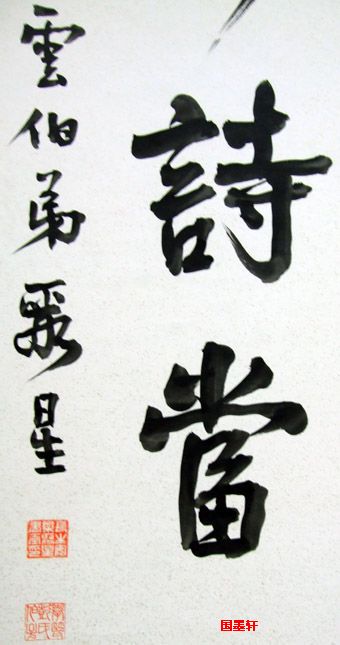 詩當
雲伯弟星
国墨轩